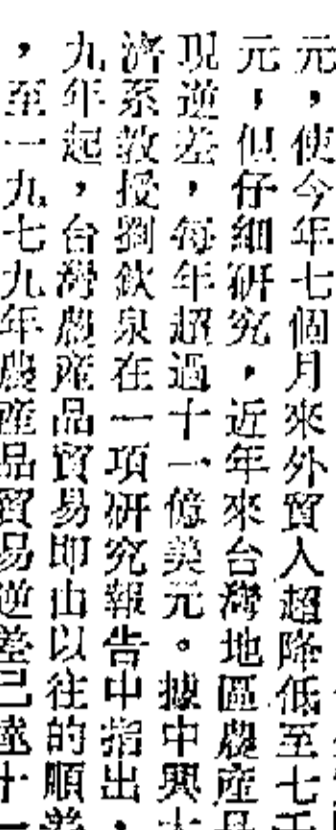 元，使今年七個月來外貿入超降低至七千
元，但仔細研究，近年來台灣地區農產品
現逆差，每年超過十一億美元。據中興大
濟系教授劉欽泉在一項研究報告中指出，
九年起，台灣農產品貿易即由以往的順差
，至一九七九年農產品貿易逆差已達十一